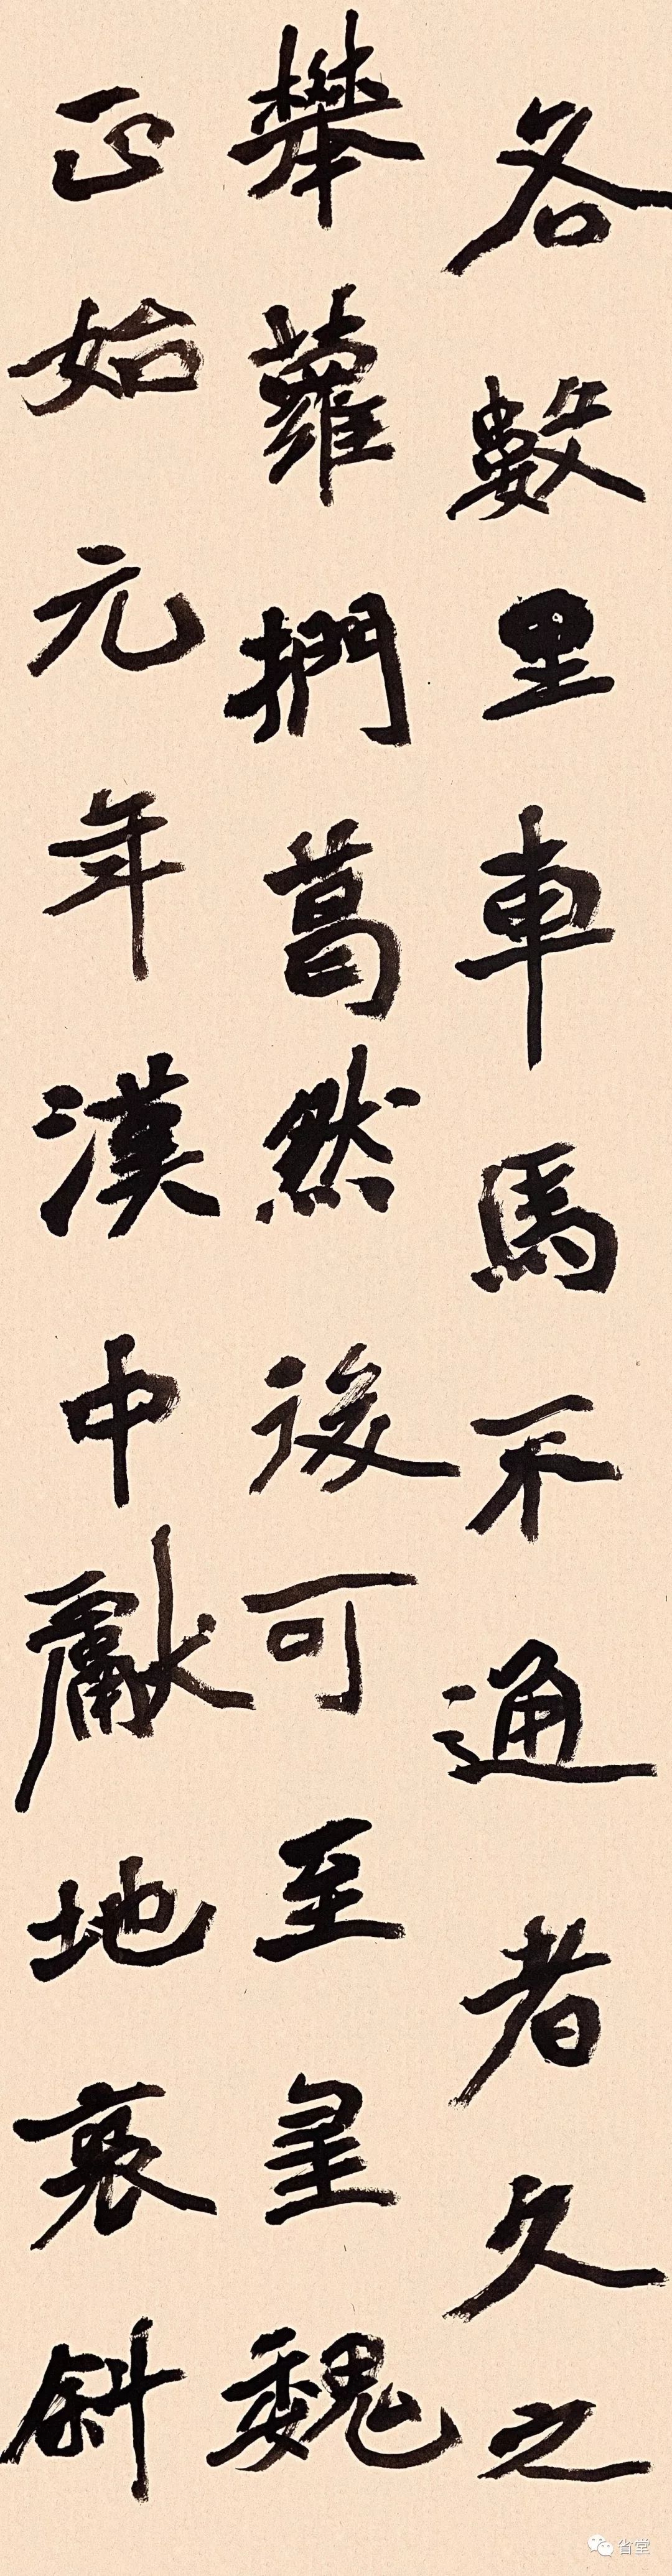 各數里車馬不通者久之
攀蘿捫葛然後可至皇魏
正始元年漢中獻地褒斜
省堂